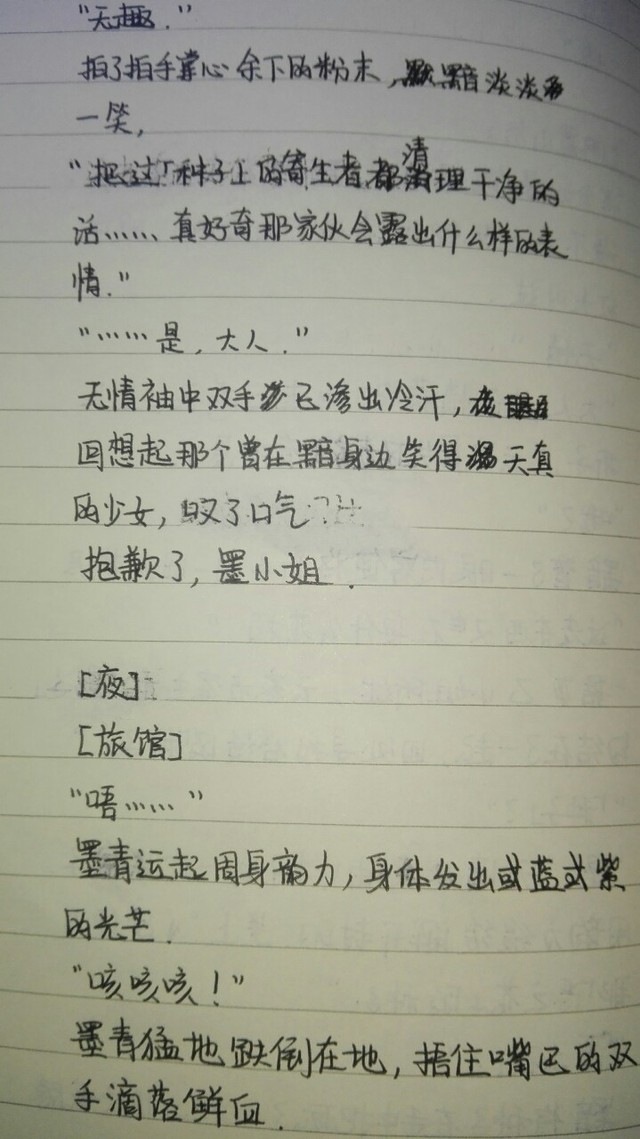 "无趣."
拍了拍手掌心余下的粉末,黯淡淡
一笑,
清
"把过「种子」上的寄生者都理干净的
话……真好奇那家伙会露出什么样的表
情."
"……是,大人."
无情袖中双手已渗出冷汗,
回想起那个曾在黯身边笑得天真
的少女,叹了口气
抱歉了,墨小姐.
[夜]
[旅馆]
"唔……"
墨青运起周身韵力,身体发出或蓝或紫
的光芒.
"咳咳咳!"
墨青猛地跌倒在地,捂住嘴巴的双
手滴落鲜血.